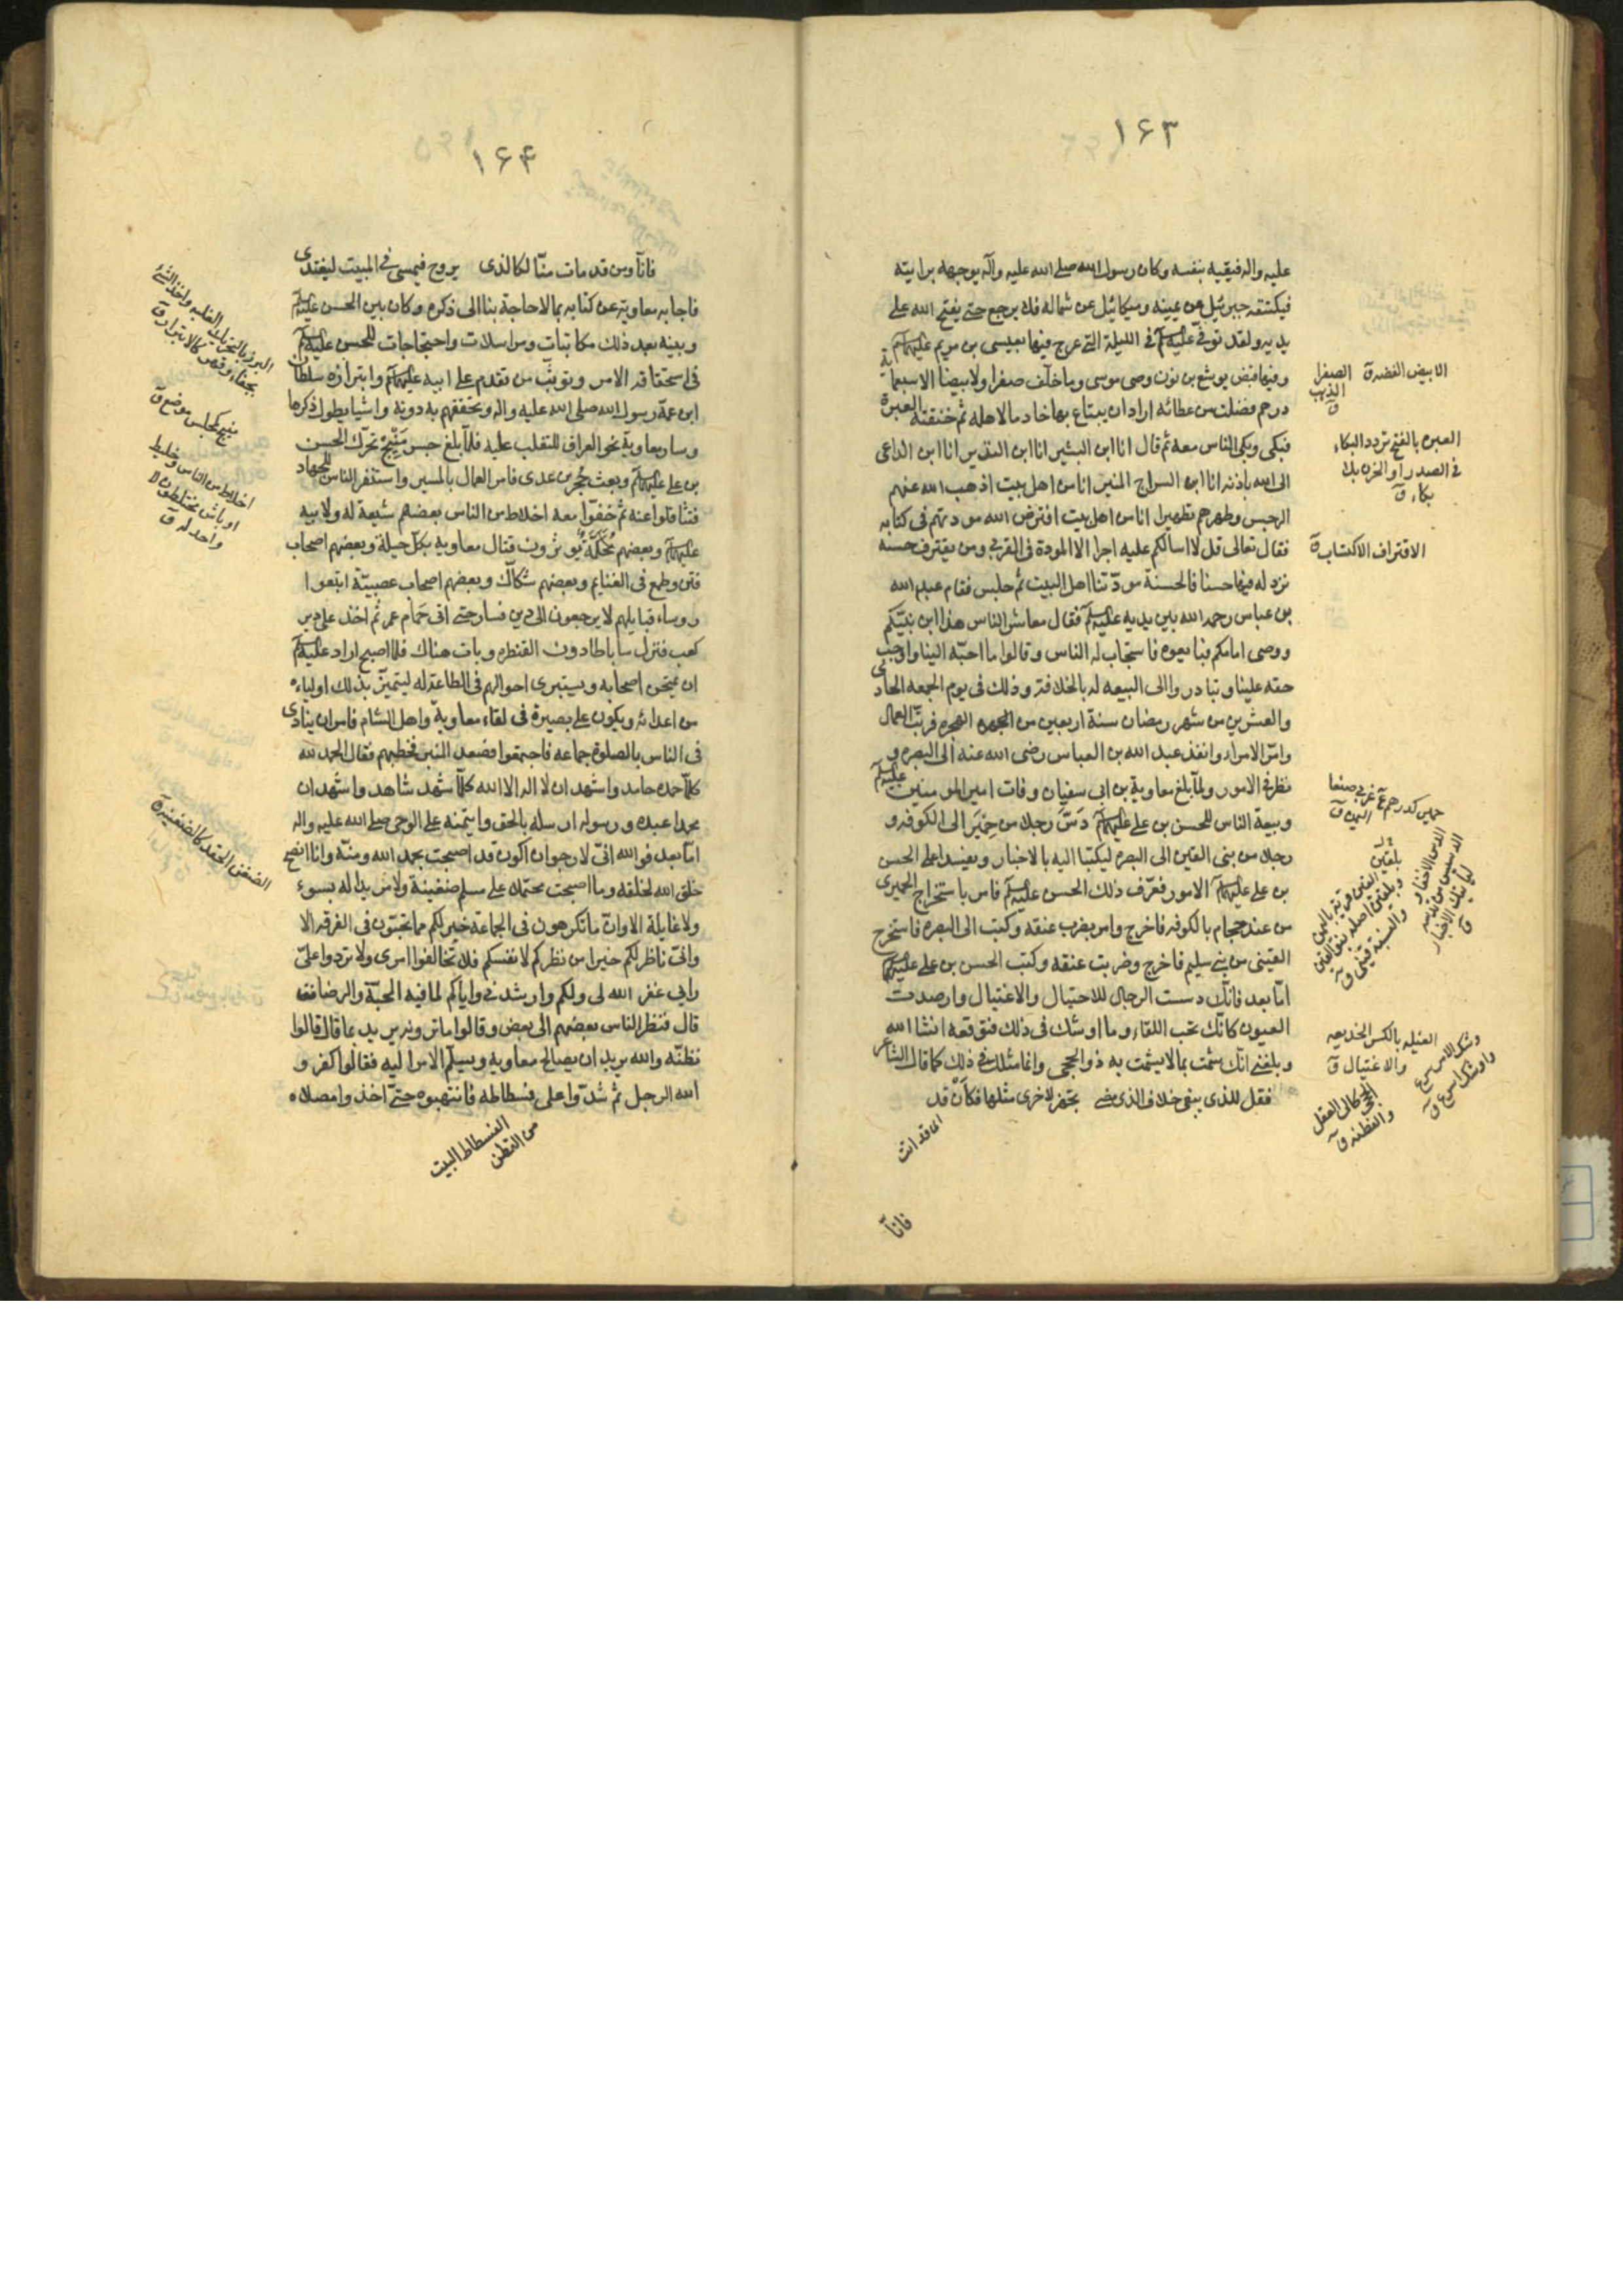 ١۶٣
عليه واله فيقيه بنفسه وكان رسول الله صلى الله عليه وآله يوجهه برايته
فيكتنفه جبرئيل عن يمينه وميكائيل عن شماله فلا يرجع حتى يفتح الله على
يديه ولقد توفي عليه السلام في الليلة التي عرج فيها بعيسى بن مريم عليهما السلام
وفيها قبض يوشع بن نون وصى موسى وما خلف صفرا ولا بيضا الا سبعمائة
درهم فضلت من عطائه اراد ان يبتاع بها خادما لاهله ثم خنقته العبرة
فبكى وبكى الناس معه ثم قال انا ابن البشير انا ابن النذير انا ابن الداعى
الى الله باذنه انا ابن السراج المنير انا من اهل بيت اذهب الله عنهم
الرجس وطهرهم تطهيرا انا من اهل بيت افترض الله مودتهم فى كتابه
فقال تعالى قل لا اسألكم عليه اجرا الا المودة فى القربى ومن يقترف حسنه
نزد له فيها حسنا فالحسنة مودّتنا اهل البيت ثم جلس فقام عبد الله
بن عباس رحمه الله بين يديه عليه السلام فقال معاشر الناس هذا ابن نبيّكم
ووصى امامكم فبايعوه فاستجاب له الناس وقالوا ما احبّه الينا واوجب
حقه علينا وتبادروا الى البيعه له بالخلافة وذلك فى يوم الجمعه الحادى
والعشرين من شهر رمضان سنة اربعين من الهجره فرتّب العمال
وامّر الامراء وانفذ عبد الله بن العباس رضى الله عنه الى البصره و
نظر فى الامور ولمّا بلغ معاوية بن ابى سفيان وفات امير المومنين عليه السلام
وبيعة الناس للحسن بن على عليهما السلام دَسّ رجلا من حِمْيَر الى الكوفه و
رجلا من بنى القين الى البصره ليكتبا اليه بالاخبار ويفسدا على الحسن
بن على عليهما السلام الامور فعرّف ذلك الحسن عليه السلام فامر باستخراج الحميرى
من عند حجام بالكوفه فاخرج وامر بضرب عنقه وكتب الى البصره فاستخرج
القينى من بنى سليم فاخرج وضربت عنقه وكتب الحسن بن على عليهما السلام
امّا بعد فانّك دسست الرجال للاحتيال والاغتيال وارصدت
العيون كانّك تحب اللقاء وما اوشك فى ذلك فتوقعه انشا الله
وبلغنى انّك شمتّ بما لا يشمت به ذو الحجى وانما مثلك فى ذلك كما قال الشاعر
فقل للذى يبقى خلاف الذى مضى تجهّز لاخرى مثلها فكأنّ قد
اى قد اتت
فانّا
الابيض الفضه ق الصفرا الذهب ق
العبره بالفتح تردد البكاء
فى الصدر او الحزن بلا
بكاء ق
الاقتراف الاكتساب ق
حمير كدرهم ع غربى صنعا
اليمن ق
الغيله بالكسر الخديعه
والاغتيال ق
الحجى كالى العقل
والفطنه ق
١۶۴
فانّا ومن قد مات منّا لكالذى يروح فيمسى فى المبيت ليغتدى
فاجابه معاوية عن كتابه بما لا حاجة بنا الى ذكره وكان بين الحسن عليه السلام
وبينه بعد ذلك مكاتبات ومراسلات واحتجاجات للحسن عليه السلام
فى استحقاقه الامر وتوثّب من تقدم على ابيه عليهما السلام وابتزازه سلطان
ابن عمّه رسول الله صلى الله عليه واله وتحققهم به دونه واشيا يطول ذكرها
وسار معاوية نحو العراق للتغلب عليه فلمّا بلغ جسر مَنْبِج تحرّك الحسن
بن على عليهما السلام وبعث حُجْر بن عدى فامر العمال بالمسير واستنفر الناس للجهاد
فتثاقلوا عنه ثم خفّوا معه اخلاط من الناس بعضهم شيعة له ولابيه
عليهما السلام وبعضهم مُحَكِّمَة يُوثرون قتال معاوية بكلّ حيلة وبعضهم اصحاب
فتن وطمع فى الغنايم وبعضهم شكّاك وبعضهم اصحاب عصبيّة اتبعوا
روساء قبايلهم لا يرجعون الى دين فسار حتى اتى حَمام عمر ثم اخذ على دير
كعب فنزل ساباط دون القنطره وبات هناك فلما اصبح اراد عليه السلام
ان يمتحن اصحابه ويستبرى احوالهم فى الطاعة له ليتميز بذلك اولياءه
من اعدائه ويكون على بصيرة فى لقاء معاوية واهل الشام فامر ان ينادى
فى الناس بالصلوة جماعه فاجتمعوا فصعد المنبر فخطبهم فقال الحمد لله
كلّما حمده حامد واشهد ان لا اله الا الله كلّما شهد شاهد واشهد ان
محمدا عبده ورسوله ارسله بالحق وايتمنه على الوحى صلى الله عليه واله
امّا بعد فوالله انّى لارجو ان اكون قد اصبحت بحمد الله ومنّه وانا انصح
خلق الله لخلقه وما اصبحت محتملا على مسلم ضغينة ولا مريدا له بسوء
ولا غايلة الا وانّ ما تكرهون فى الجماعة خير لكم مما تحبّون فى الفرقه الا
وانّى ناظر لكم خيرا من نظركم لانفسكم فلا تخالفوا امرى ولا تردوا علىّ
رايى غفر الله لى ولكم وارشدنى واياكم لما فيه المحبّة والرضا
قال فنظر الناس بعضهم الى بعض وقالوا ما ترونه يريد بما قال قالوا
نظنّه والله يريد ان يصالح معاويه ويسلّم الامر اليه فقالوا كفر و
الله الرجل ثم شدّوا على فسطاطه فانتهبوه حتّى اخذوا مصلاه
الفسطاط البيت
من القطن
منبج كمجلس موضع ق
اخلاط من الناس وخليط
اوباش مختلطون لا
واحد له ق
الضغن الحقد كالضغينة ق